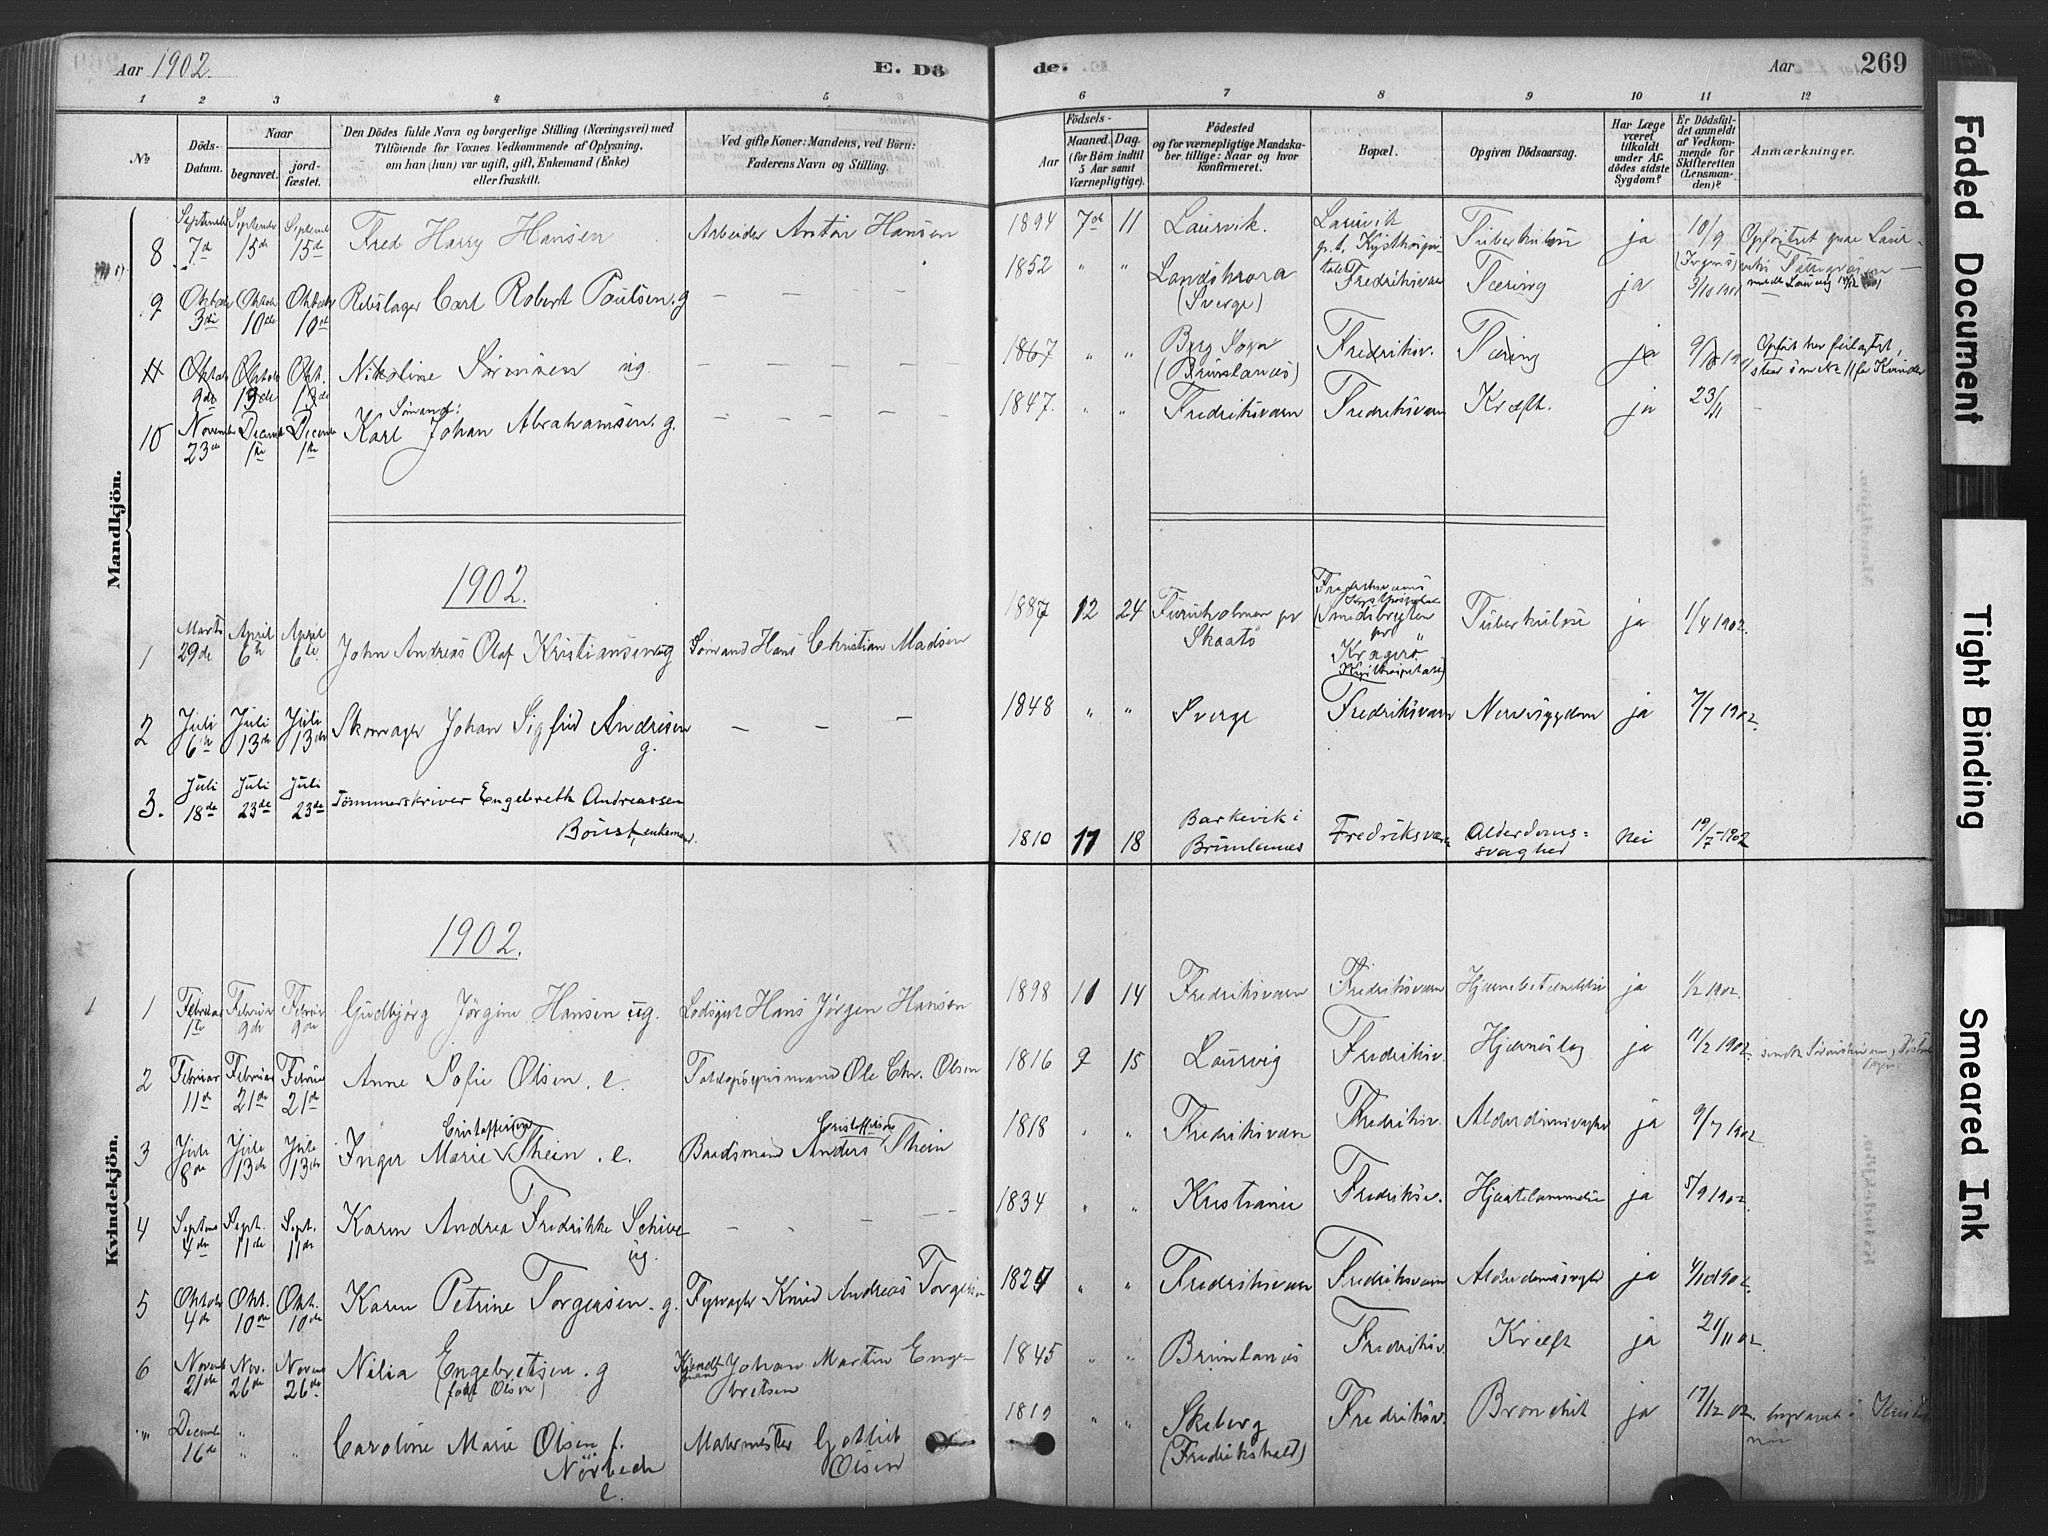 Aar 1902.
E. Dö
de.
Aar
269
1 2 3 4 5 6 7 8 9 10 11 12
No
Döds-
Datum.
Naar
begravet.
jord-
fæstet.
Den Dödes fulde Navn og borgerlige Stilling (Næringsvei) med
Tilföiende for Voxnes Vedkommende af Oplysning,
om han (hun) var ugift, gift, Enkemand (Enke)
eller fraskilt.
Ved gifte Koner: Mandens, ved Börn:
Faderens Navn og Stilling.
Födsels-
Aar
Maaned.
Dag.
(for Börn indtil
5 Aar samt
Værnepligtige).
Födested
og for værnepligtige Mandska-
ber tillige: Naar og hvor
konfirmeret.
Bopæl.
Opgiven Dödsaarsag.
Har Læge
været
tilkaldt
under Af-
dödes sidste
Sygdom?
Er Dödsfal-
det anmeldt
af Vedkom-
mende for
Skifteretten
(Lensman-
den)?
Anmærkninger.
Mandkjön.
8 September 7de September 15de September 15de Fred Harry Hansen Arbeider Anton Hansen 1894 7de 11 Laurvik. Laurvik p.t. Kysthospi-talet Tuberkulose ja 10/9
9 Oktober 3die Oktober 10de Oktober 10de Rebslager Carl Robert Paulsen. g — — — — 1852 " " Landskrona (Sverge) Fredriksværn Tæring ja 3/10 1901
11 Oktober 9de Oktober 13de Okt. 13de Nikoline Sörensen ug. — — — — 1867 " " Berg Sogn (Brunlanæs) Fredriksv. Tæring ja Opført her feilagtigt, staar som No 11 for Kvinder
10 November 23de December 1ste December 1ste Sømand: Karl Johan Abrahamsen. g. — — — — 1847. " " Fredriksværn Fredriksværn Kræft. ja 23/11 -
1902.
1 Marts 29de April 6te April 6te John Andreas Olaf Kristiansen ug Sømand Hans Christian Madsen 1887 12 24 Furuholmen pr Skaatø Fredriksværns Kysthospital (Smedsbrygten pr Kragerø Kysthospitalet) Tuberkulose ja 1/4 1902.
2 Juli 6te Juli 13de Juli 13de Skomager Johan Sigfrid Andresen g. — — — 1848 " " Sverge Fredriksværn Nervesygdom ja 7/7 1902.
3. Juli 18de Juli 23de Juli 23de Tømmerskriver Engebreth Andreassen Bonst, enkemand. 1810 11 18 Barkevik i Brunlanæs Fredriksværn Alderdoms-svaghed Nei 19/7 1902
Kvindekjön.
1902.
1 Februar 1ste Februar 9de Februar 9de Gudbjørg Jørgine Hansen ug. Lodsgut Hans Jørgen Hansen 1898 11 14 Fredriksværn Fredriksværn Hjernebetændelse ja 1/2 1902.
2 Februar 11de Februar 21de Februar 21de Anne Sofie Olsen. e. Toldopsynsmand Ole Chr. Olsen 1816 9 15 Laurvig Fredriksv. Hjerneslag ja 11/2 1902.
3 Juli 8de Juli 13de Juli 13de Inger Marie Cristoffersen Thein. e. Baadsmand Anders Cristoffersen Thein 1818 " " Fredriksværn Fredriksv. Alderdomssvaghed ja 9/7 1902.
4 Septem 4de Sept. 11de Sept. 11de Karen Andrea Fredrikke Schive ug. — — — 1834 " " Kristiania Fredriksv. Hjertelammelse ja 5/9 1902.
5 Oktober 4de Okt. 10de Okt. 10de Karen Petrine Torgersen. g. Fyrvagter Knud Andreas Torgersen 1827 " " Fredriksværn Fredriksværn Alderdomssvaghed ja 4/10 1902.
6 Novemb 21de Nov. 26de Novemb 26de Nilia Engebretsen. g (født Olsen) Kjendtmand Johan Martin Enge-bretsen 1845 " " Brunlanæs Fredriksv. Kræft ja 21/11 02.
" December 16de " " Caroline Marie Olsen f. Nörbech e. Malermester Gotlieb Olsen 1819 " " Skeberg (Fredrikshald) Fredriksv. Bronchit ja 17/12 02. begravet i Kristiania
Faded Document
Tight Binding
Smeared Ink